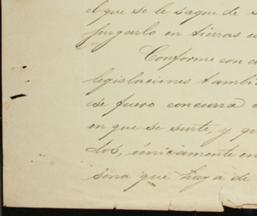 el que se le saque de
juzgarlo en tierras
Conforme con
legislaciones tambi
ese fuero concurra
en que se siente, y
dos, únicamente en
sona que haya de